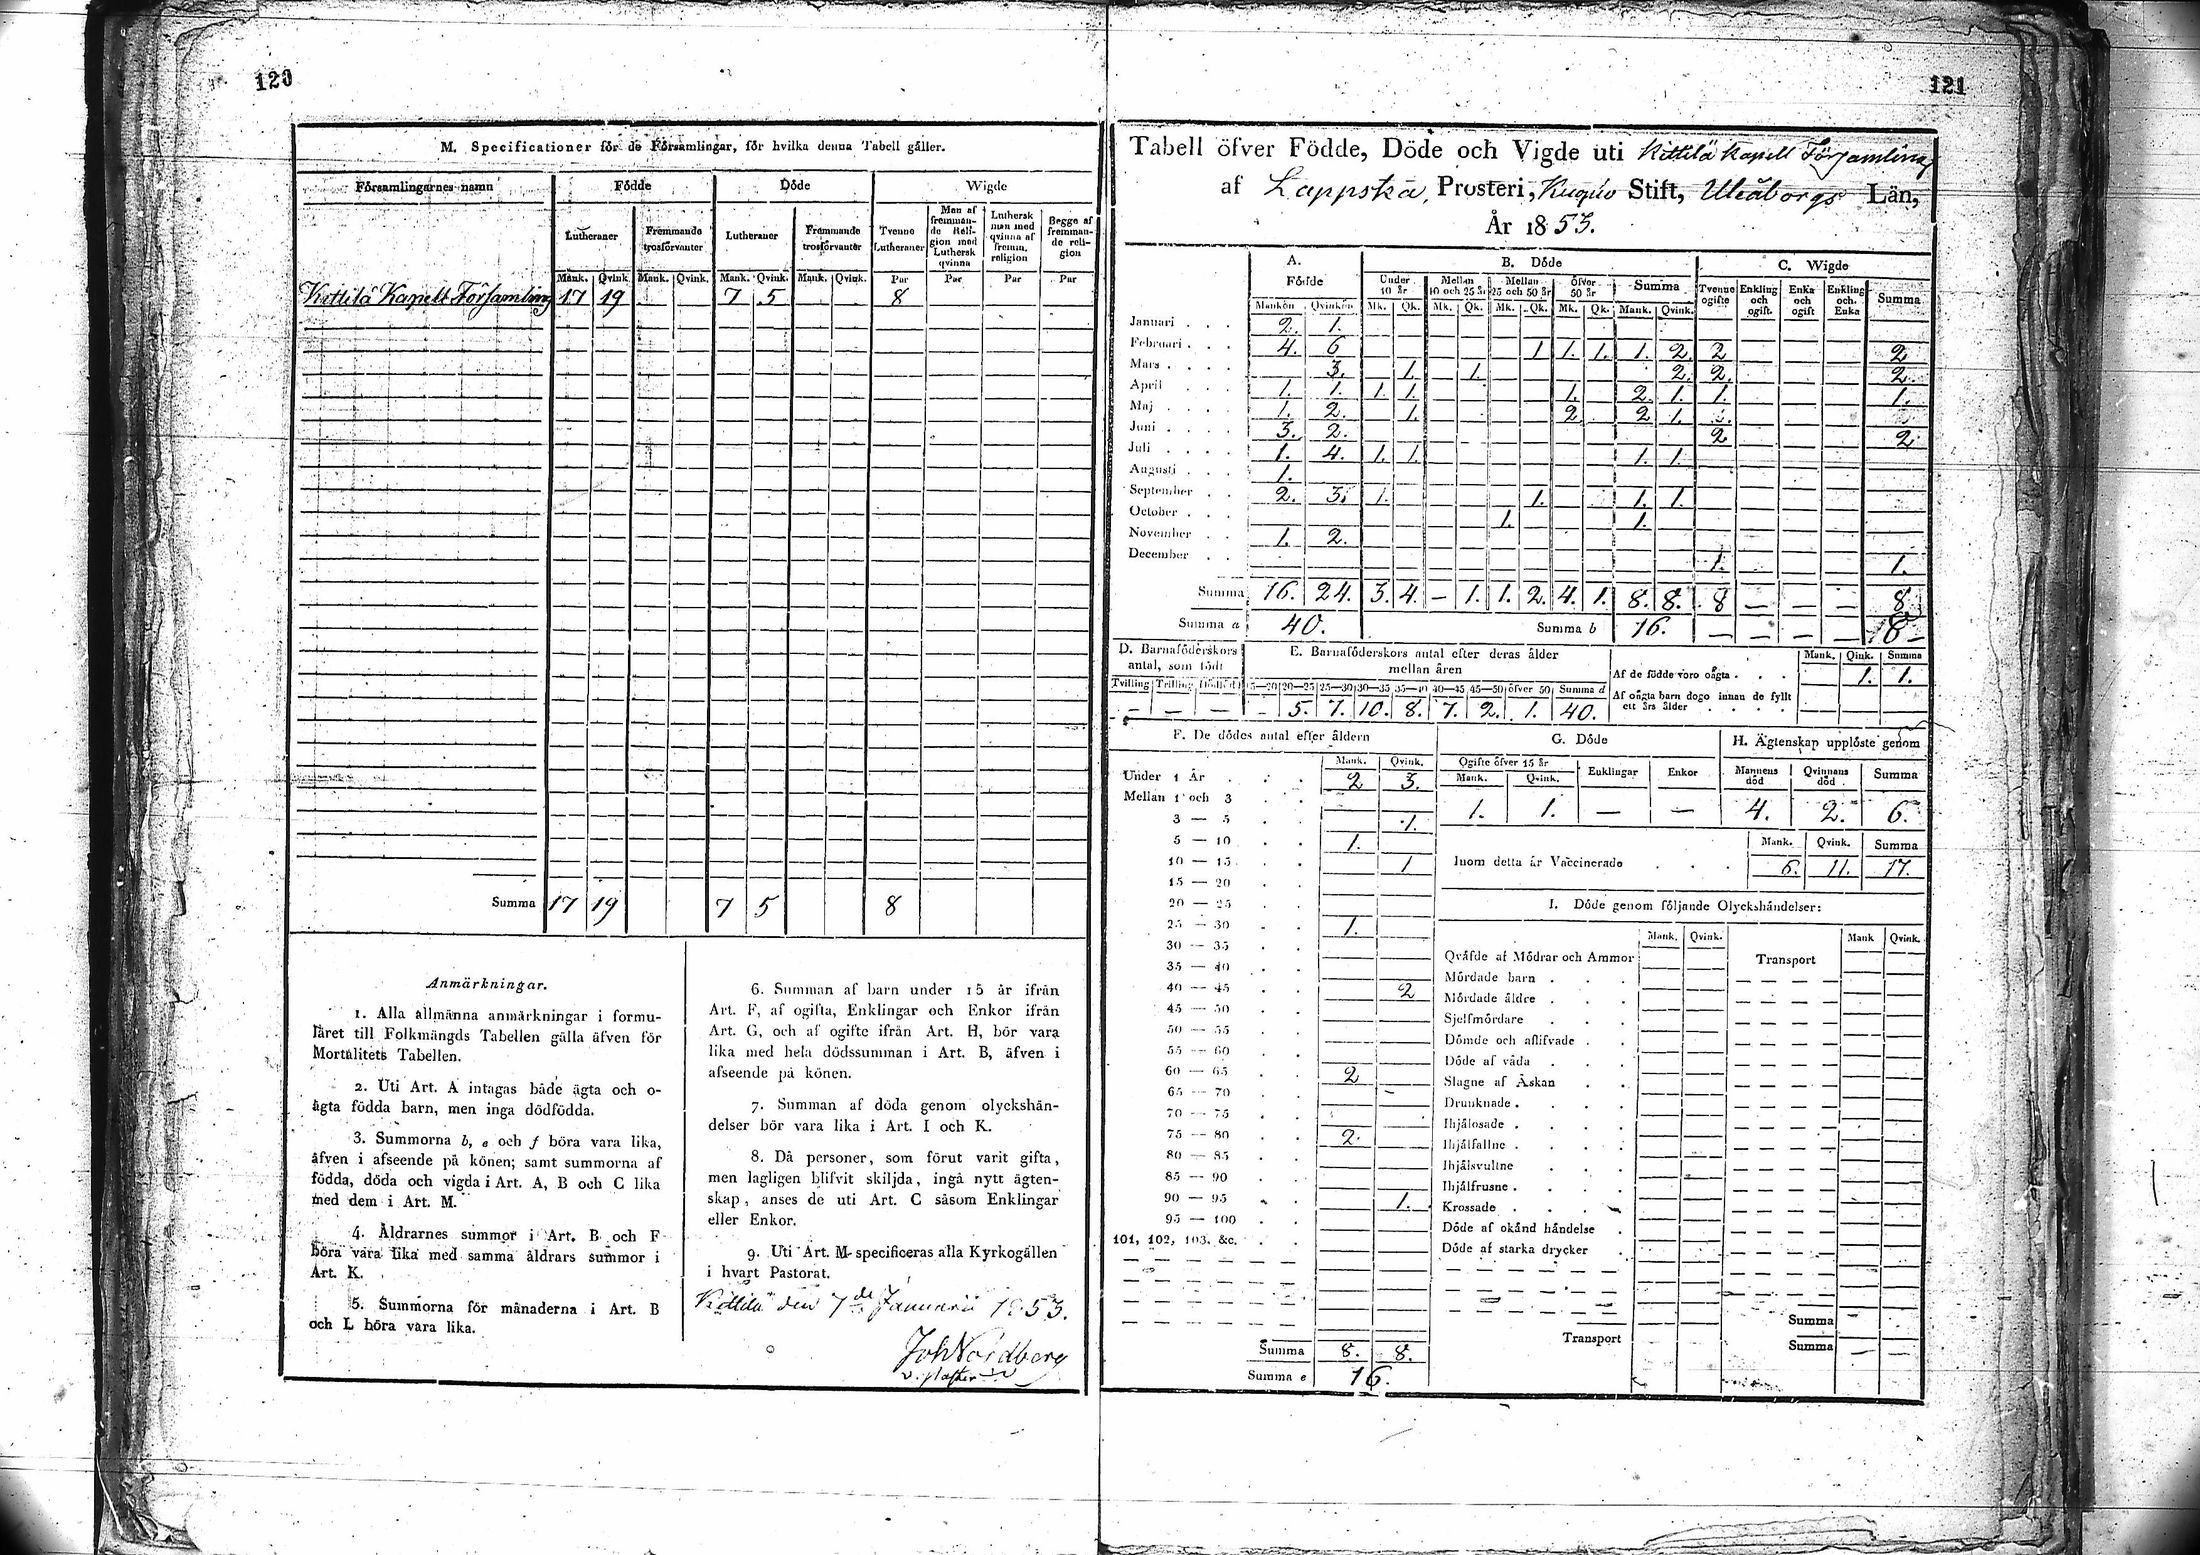 120
M. Specificationer för de Församlingar, för hvilka denna Tabell gäller.
Församlingarnes namn Födde Döde Wigde
Lutheraner Fremmande trosförvanter Lutheraner Fremmande trosförvanter Tvenne Lutheraner Man af fremmande Religion med Luthersk qvinna Luthersk man med qvinna af fremm. religion Begge af fremmande religion
Mank. Qvink. Mank. Qvink. Mank. Qvink. Mank. Qvink. Par Par Par Par
Kittilä Kapell Församling 17 19 7 5 8
Summa 17 19 7 5 8
Anmärkningar.
1. Alla allmänna anmärkningar i formu-
läret till Folkmängds Tabellen gälla äfven för
Mortalitets Tabellen.
2. Uti Art. A intagas både ägta och o-
ägta födda barn, men inga dödfödda.
3. Summorna b, e och f böra vara lika,
äfven i afseende på könen; samt summorna af
födda, döda och vigda i Art. A, B och C lika
med dem i Art. M.
4. Åldrarnes summor i Art. B och F
böra vara lika med samma åldrars summor i
Art. K.
5. Summorna för månaderna i Art. B
och L böra vara lika.
6. Summan af barn under 15 år ifrån
Art. F, af ogifta, Enklingar och Enkor ifrån
Art. G, och af ogifte ifrån Art. H, bör vara
lika med hela dödssumman i Art. B, äfven i
afseende på könen.
7. Summan af döda genom olyckshän-
delser bör vara lika i Art. I och K.
8. Då personer, som förut varit gifta,
men lagligen blifvit skiljda, ingå nytt ägten-
skap, anses de uti Art. C såsom Enklingar
eller Enkor.
9. Uti Art. M specificeras alla Kyrkogällen
i hvart Pastorat.
Kittilä den 7de Januarii 1853.
Joh Nordberg
121
Tabell öfver Födde, Döde och Vigde uti Kittilä Kapell Församling
af Lappska Prosteri, Kuopio Stift, Uleåborgs Län,
År 1853.
A. Födde B. Döde C. Wigde
Under 10 år Mellan 10 och 25 år Mellan 25 och 50 år Öfver 50 år Summa Tvenne ogifte Enkling och ogift. Enka och ogift Enkling och Enka Summa
Mankön Qvinkön Mk. Qk. Mk. Qk. Mk. Qk. Mk. Qk. Mank. Qvink.
Januari 2. 1.
Februari 4. 6 1 1. 1. 1. 2. 2 2
Mars 3. 1. 1. 2. 2. 2.
April 1. 1. 1. 1. 1. 2. 1. 1. 1.
Maj 1. 2. 1. 2 2 1.
Juni 3. 2. 2 2
Juli 1. 4. 1. 1. 1. 1.
Augusti 1.
September 2. 3. 1. 1. 1. 1.
October 1. 1.
November 1. 2.
December 1. 1.
Summa 16. 24. 3. 4. — 1. 1. 2. 4. 1. 8. 8. 8 — — — 8.
Summa a 40. Summa b 16. — — — —
D. Barnaföderskors antal, som födt
Tvilling Trilling Dödfödt
— — —
E. Barnaföderskors antal efter deras ålder mellan åren
15—20 20—25 25—30 30—35 35—40 40—45 45—50 öfver 50 Summa d
— 5. 7. 10. 8. 7. 2. 1. 40.
Mank. Qink. Summa
Af de födde voro oägta 1. 1.
Af oägta barn dogo innan de fyllt ett års ålder
F. De dödes antal efter åldern
Mank. Qvink.
Under 1 År 2 3.
Mellan 1 och 3
3 — 5 1.
5 — 10 1.
10 — 15 1
15 — 20
20 — 25
25 — 30 1.
30 — 35
35 — 40
40 — 45 2
45 — 50
50 — 55
55 — 60
60 — 65 2
65 — 70
70 — 75
75 — 80 2.
80 — 85
85 — 90
90 — 95 1.
95 — 100
101, 102, 103. &c.
Summa 8. 8.
Summa e 16.
G. Döde
Ogifte öfver 15 år Enklingar Enkor
Mank. Qvink.
1. 1. — —
H. Ägtenskap upplöste genom
Mannens död Qvinnans död Summa
4. 2. 6.
Mank. Qvink. Summa
Inom detta år Vaccinerade 6. 11. 17.
I. Döde genom följande Olyckshändelser:
Mank. Qvink. Mank Qvink.
Qväfde af Mödrar och Ammor Transport
Mördade barn
Mördade äldre
Sjelfmördare
Dömde och aflifvade
Döde af våda
Slagne af Åskan
Drunknade
Ihjälosade
Ihjälfallne
Ihjälsvultne
Ihjälfrusne
Krossade
Döde af okänd händelse
Döde af starka drycker
Summa
Transport Summa — —